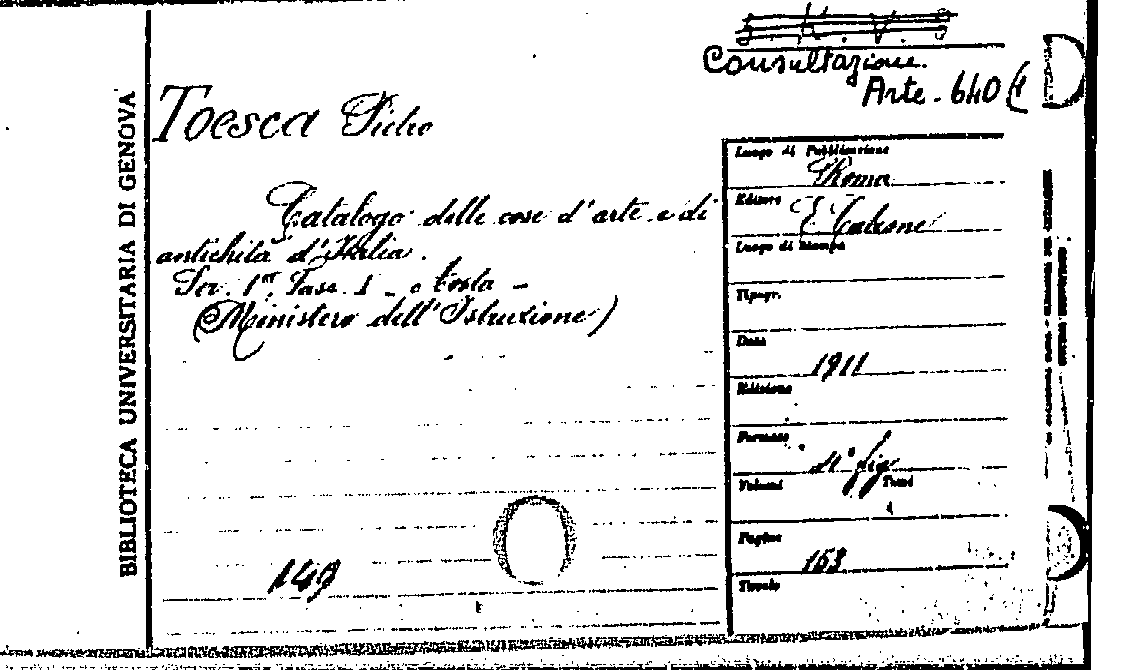 BIBLIOTECA UNIVERSITARIA DI GENOVA
Consultazione.
Arte. 640
Toesca Pietro
Catalogo delle cose d'arte e di
antichità d'Italia.
Ser. 1ª, Fasc. 1 -
(Ministero dell'Istruzione)
149
Luogo di Pubblicazione
Roma
Editore
E. Calzone
Luogo di Stampa
Tipogr.
Data
1911
Edizione
Formato
4° fig
Volumi Tomi
1
Pagine
163
Tavole